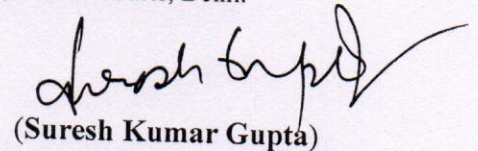 Delhi.
Suresh Gupta
(Suresh Kumar Gupta)